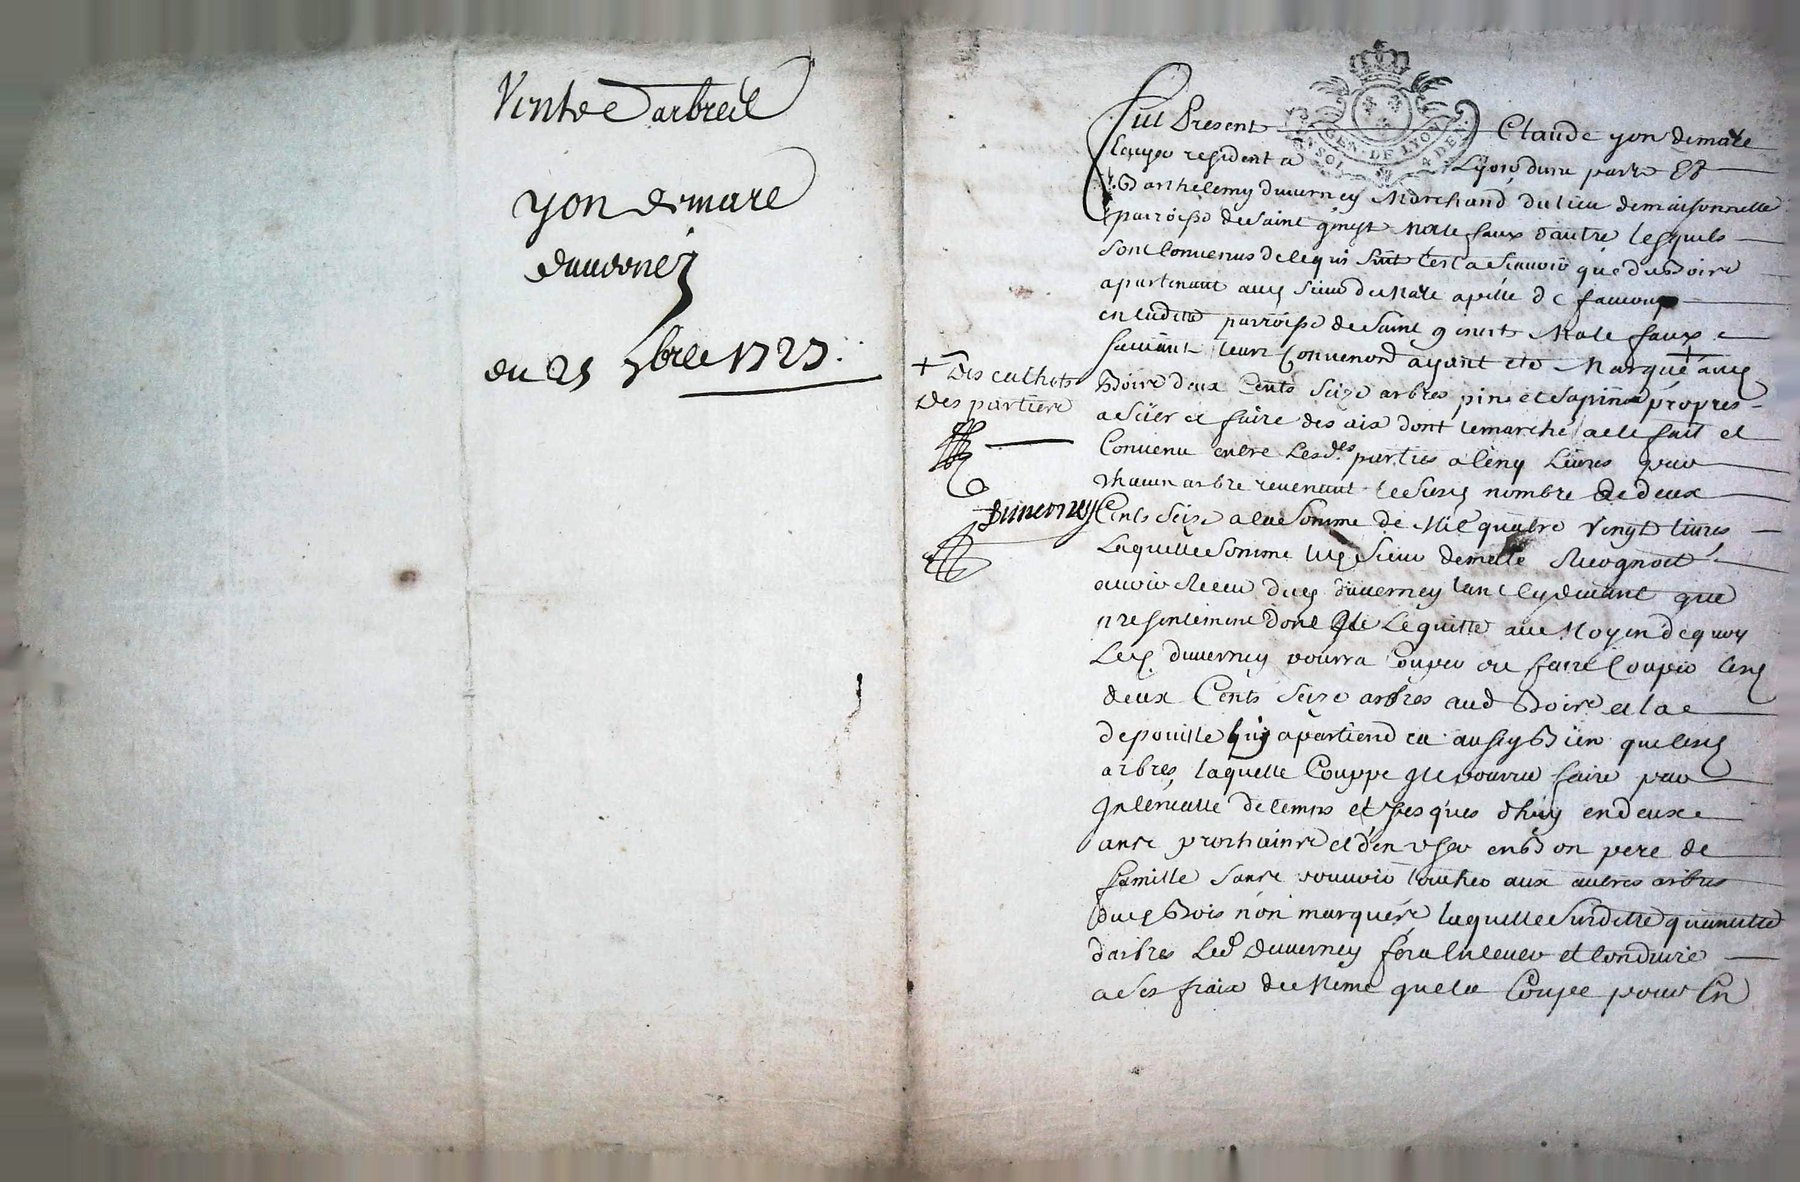 Vente d'arbres
yon demare
duverney
du 25 7bre 1727
GEN. DE LYON
UN SOL 4 DEN.
fut Present Claude yon demare
Ecuyer resident a Lyon dune part Et
Barthelemy duverney Marchand du lieu de maisonnette
parroisse de Saint genest Malefaux d'autre lesquels
sont Convenus de ce qui suit C'est a Scavoir que du Boire
apartenant audit Sieur de Mare apellé de
en laditte parroisse de Saint genest Malefaux
suivant leurs Convenord ayant eté Marqué + audit
+ Des culhots
Des partiere
Boire deux Cents Seize arbres pins et Sapins propres
a Sier et faire des aix dont le marché a eté fait et
Convenu entre Lesdes parties a Cinq Livres pour
Chacun arbre revenant le Susd nombre de deux
Duverney
Cents Seize a la Somme de Mil quatre Vingt livres
Laquelle Somme led Sieur demare Recognoit
avoir Receu dud duverney tant Cydevant que
presentement dont Il Le quitte au Moyen de quoy
Led duverney pourra Couper ou faire Couper lesd
deux Cents Seize arbres aud Boire et la
depouille luy apartiendra aussy Bien que lesd
arbres, laquelle Couppe Il pourra faire par
Intervalle de temps et Jusques d'huy en deux
ans prochains et d'en User en Bon pere de
famille Sans pouvoir toucher aux autres arbres
dud Bois non marqués laquelle Susditte quantitté
d'arbres Led Duverney fera Enlever et Conduire
a Ses fraix de Meme que la Coupe pour En